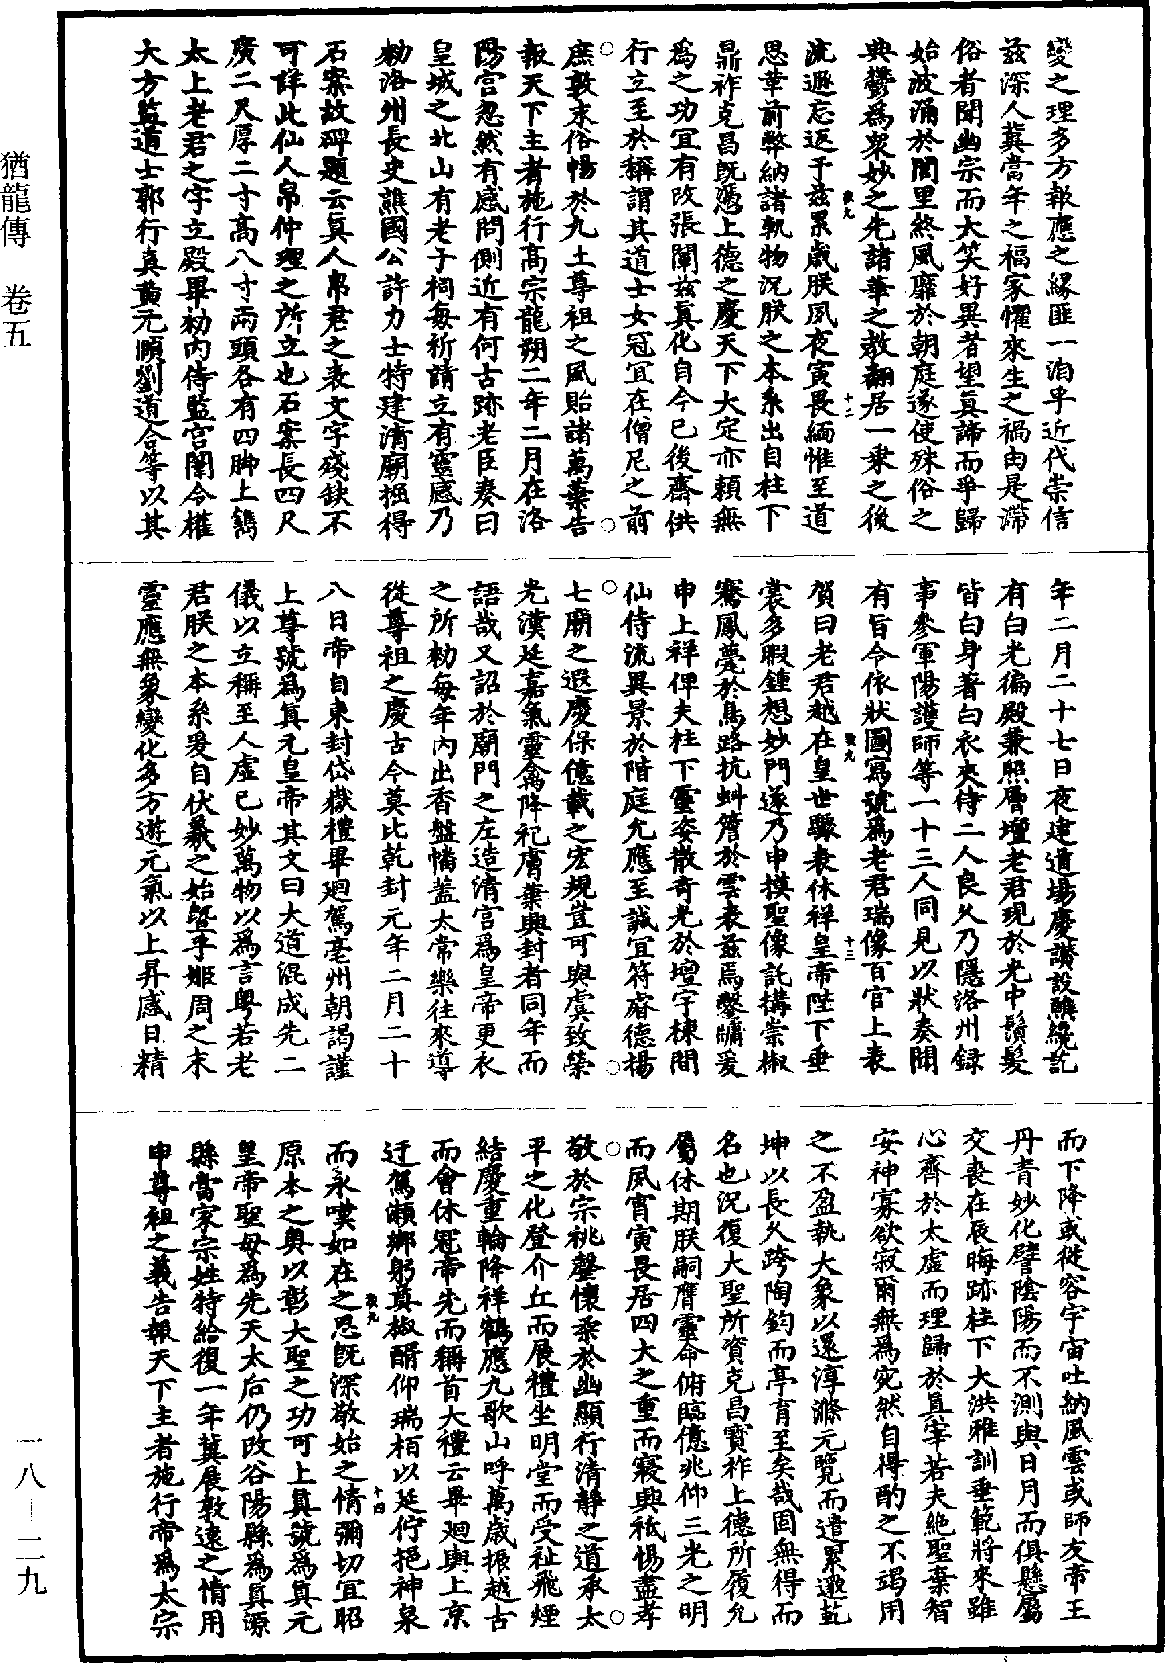 變之理多方報應之緣匪一洎乎近代崇信
茲深人冀當年之福家懼來生之禍由是滯
俗者聞幽宗而大笑好異者望真諦而爭歸
始波涌於閭里終風靡於朝庭遂使殊俗之
典鬱為衆妙之先諸華之教翻居一乘之後
流遯忘返于茲累歲朕夙夜寅畏緬惟至道
思革前弊納諸軌物況朕之本系出自柱下
鼎祚克昌既憑上德之慶天下大定亦賴無
為之功宜有改張闡茲真化自今已後齋供
行立至於稱謂其道士女冠宜在僧尼之前
庶敦本俗暢於九土尊祖之風貽諸萬葉告
報天下主者施行高宗龍朔二年二月在洛
陽宮忽然有感問側近有何古跡老臣奏曰
皇城之北山有老子祠每祈請立有靈感乃
勑洛州長史譙國公許力士特建清廟掘得
石案故碑題云真人帛君之表文字殘缺不
可詳此仙人帛仲理之所立也石案長四尺
廣二尺厚二寸高八寸兩頭各有四脚上鐫
太上老君之字立殿畢勑內侍監宮闈令權
大方監道士郭行真黃元賾劉道合等以其
年二月二十七日夜建道場慶讚設醮纔訖
有白光徧殿兼照層壇老君現於光中鬚髮
皆白身著白衣夾侍二人良久乃隱洛州録
事參軍陽護師等一十三人同見以狀奏聞
有旨令依狀圖寫號為老君瑞像百官上表
賀曰老君越在皇世驟表休祥皇帝陛下垂
裳多暇鍾想妙門遂乃申摸聖像託構崇椒
騫鳳甍於鳥路抗虯簷於雲表茲焉鑿牖爰
申上祥俾夫柱下靈姿散奇光於壇宇棟間
仙侍流異景於階庭允應至誠宜符睿德楊
七廟之遐慶保億載之宏規豈可與虞致榮
光漢延嘉氣靈禽降祀膚葉興封者同年而
語哉又詔於廟門之左造清宮為皇帝更衣
之所勑每年內出香盤幡蓋太常樂往來導
從尊祖之慶古今莫比乾封元年二月二十
八日帝自東封岱嶽禮畢廻駕亳州朝謁謹
上尊號為真元皇帝其文曰大道混成先二
儀以立稱至人虛已妙萬物以為言粵若老
君朕之本系爰自伏羲之始曁乎姬周之末
靈應無象變化多方遊元氣以上昇感日精
而下降或從容宇宙吐納風雲或師友帝王
丹青妙化譬陰陽而不測與日月而俱懸屬
交喪在辰晦跡柱下大洪雅訓垂範將來雖
心齊於太虛而理歸於真宰若夫絕聖棄智
安神寡欲寂爾無為宛然自得酌之不竭用
之不盈執大象以還淳滌元覽而遣累邀乾
坤以長久跨陶鈞而亭育至矣哉固無得而
名也況復大聖所資克昌寶祚上德所履允
屬休期朕嗣膺靈命俯臨億兆仰三光之明
而夙宵寅畏居四大之重而寢興祗惕盡孝
敬於宗祧罄懷柔於幽顯行清靜之道承太
平之化登介丘而展禮坐明堂而受祉飛煙
結慶重輪降祥鶴應九歌山呼萬歲振越古
而會休冠帝先而稱首大禮云畢廻輿上京
迂駕瀨鄉躬奠椒醑仰瑞栢以延佇挹神泉
而永嘆如在之思既深敬始之情彌切宜昭
原本之奧以彰大聖之功可上真號為真元
皇帝聖母為先天太后仍改谷陽縣為真源
縣當家宗姓特給復一年冀展敦遠之情用
申尊祖之義告報天下主者施行帝為太宗
猶龍傳　卷五
一八—二九
敬九
十二
敬九
十三
敬九
十四